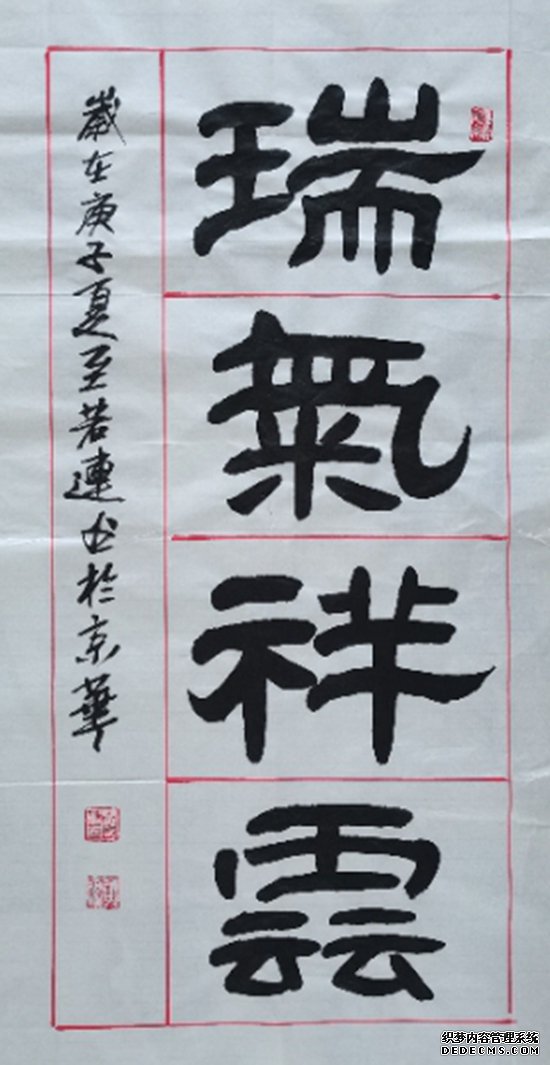 瑞氣祥雲
歲在庚子夏至若連书於京華
织梦内容管理系统
DEDECMS.COM